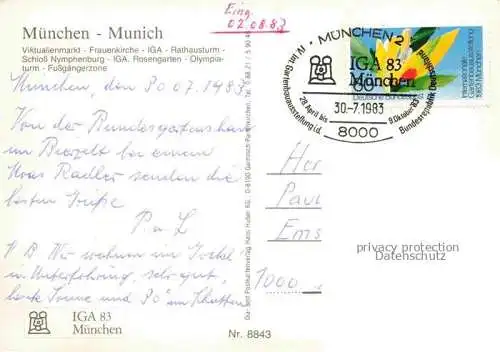 München - Munich
Viktualienmarkt - Frauenkirche - IGA - Rathausturm -
Schloß Nymphenburg - IGA. Rosengarten - Olympia-
turm - Fußgängerzone
Eing.
02.08.83
München, den 30 07.1983
Von der Bundesgartenschau
im Bierzelt bei einem
Mass Radler senden die
besten Grüße
P. u L
P B Wir wohnen im Hotel
in Unterföhring, sehr gut,
heute Sonne und 30° im Schatten
IGA 83
München
Nr. 8843
MÜNCHEN 2
IGA 83
München
IV. Int. Gartenbauausstellung i.d.
Bundesrepublik Deutschland
28. April bis
9. Oktober 83
30.-7.1983
8000
Deutsche Bundespost
Internationale
Gartenbauausstellung
1983 München
Herr
Paul
Ems
1000
privacy protection
Memorabilia